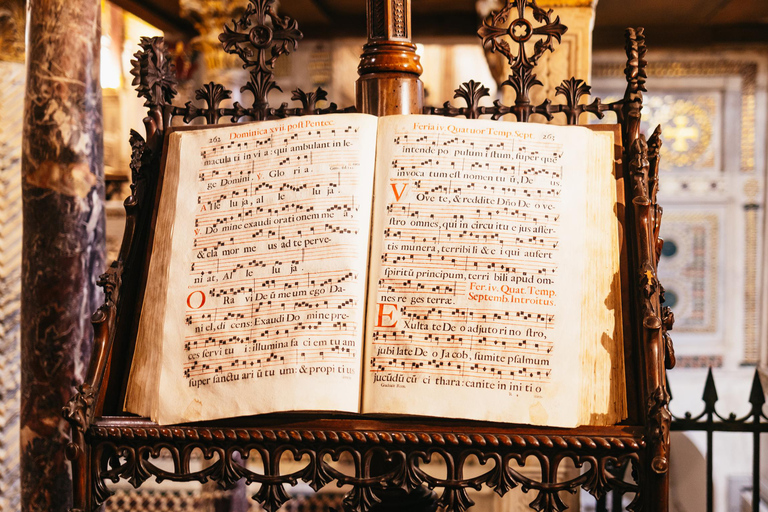 262 Dominica xvii post Pentec.
macula ti in vi a: qui ambulant in le-
ge Domini. ℣. Glo ri a.
Al le lu ja, al le lu ja.
℣. Do mine exaudi orationem me a,
& cla mor me us ad te perve-
ni at, Al le lu ja.
O Ra vi De ū me um ego Da-
ni el, di cens: Exaudi Do mine pre-
ces servi tu i: illumina fa ci em tu am
super sanctu ari ū tu um: & propi ti us
Feria iv. Quatuor Temp. Sept. 263
intende po pulum istum, super quē
invoca tum est nomen tu ū, De us
V Ove te, & reddite Dño De o ve-
stro omnes, qui in circu itu e jus affer-
tis munera, terribi li & e i qui aufert
spiritū principum, terri bili apud om-
nes re ges terræ. Fer. iv. Quat. Temp.
Septemb. Introitus.
E Xulta te De o adjuto ri no stro,
jubi late De o Ja cob, sumite psalmum
jucūdū cū ci thara: canite in ini ti o